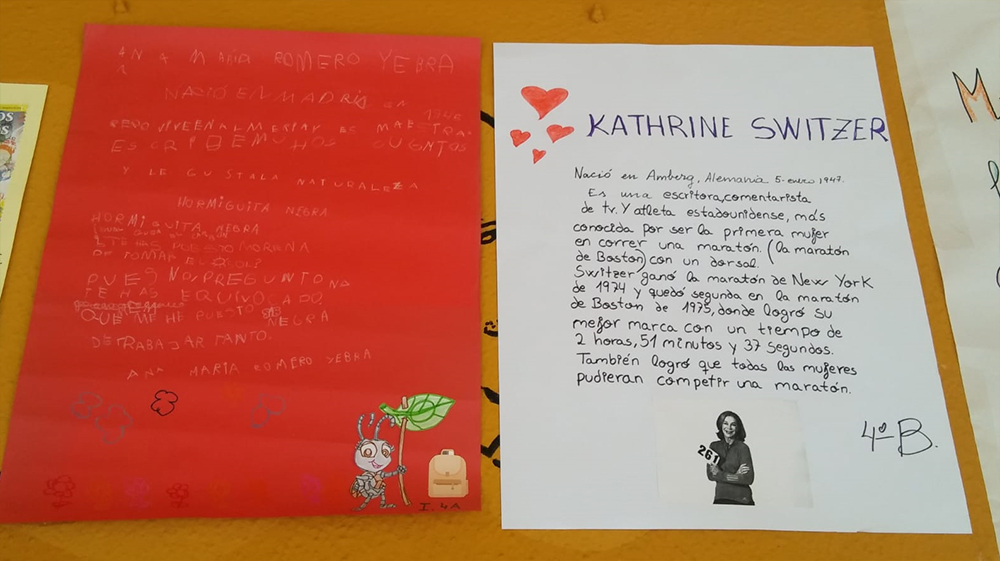 ANA MARÍA ROMERO YEBRA
NACIÓ EN MADRID EN
PERO VIVE EN ALMERIA Y ES MAESTRA.
ESCRIBE MUCHOS CUENTOS
Y LE GUSTA LA NATURALEZA
HORMIGUITA NEGRA
HORMIGUITA NEGRA
TE HAS PUESTO MORENA
DE TOMAR EL SOL?
PUES NO, PREGUNTONA
TE HAS EQUIVOCADO,
QUE ME HE PUESTO NEGRA
DE TRABAJAR TANTO.
ANA MARIA ROMERO YEBRA
I. 4A
KATHRINE SWITZER
Nació en Amberg, Alemania 5-enero 1947.
Es una escritora, comentarista
de tv. Y atleta estadounidense, más
conocida por ser la primera mujer
en correr una maratón. (la maratón
de Boston) con un dorsal.
Switzer ganó la maratón de New York
de 1974 y quedó segunda en la maratón
de Boston de 1975, donde logró su
mejor marca con un tiempo de
2 horas, 51 minutos y 37 segundos.
También logró que todas las mujeres
pudieran competir una maratón.
261
4º B.